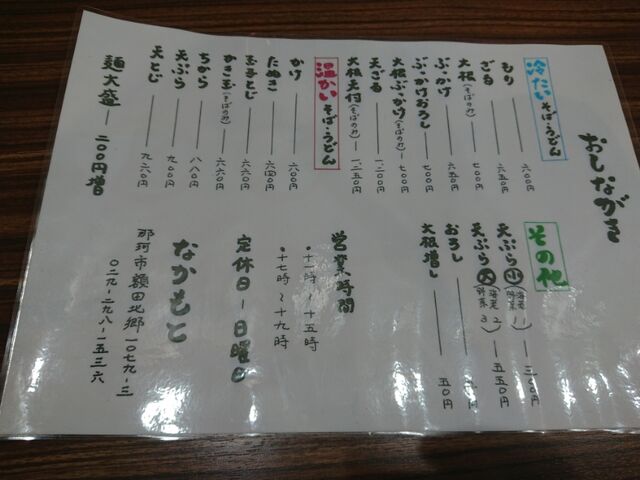 おしながき
冷たい そば・うどん
もり 六〇〇円
ざる 六五〇円
大根(そばのみ) 七〇〇円
ぶっかけ 六五〇円
ぶっかけおろし 七〇〇円
大根ぶっかけ(そばのみ) 七〇〇円
天ざる 一、二〇〇円
大根天付(そばのみ) 一、二五〇円
温かい そば・うどん
かけ 六〇〇円
たぬき 六四〇円
玉子とじ 六六〇円
かき玉(そばのみ) 六六〇円
ちから 八八〇円
天ぷら 九〇〇円
天とじ 九六〇円
麺大盛 二〇〇円増
その他
天ぷら 小 (海老1 野菜) 三〇〇円
天ぷら 大 (海老2 野菜3) 五五〇円
おろし 円
大根増し 五〇円
営業時間
・十一時〜十五時
・十七時〜十九時
定休日 ー 日曜日
なかもと
那珂市額田北郷一〇七九-三
〇二九-二九八-一五三六